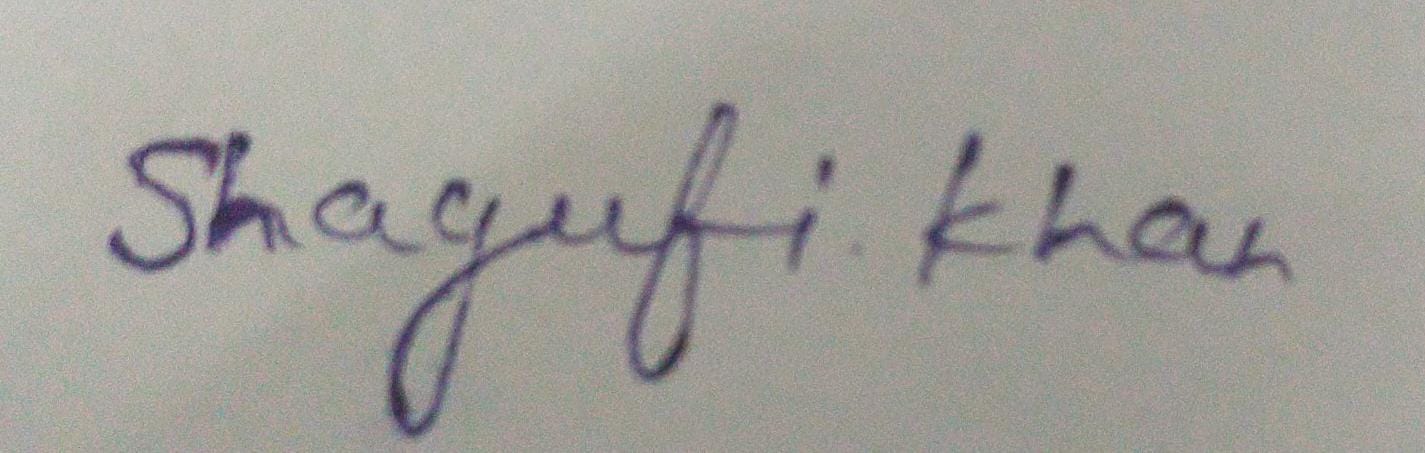 Shagufi. Khan